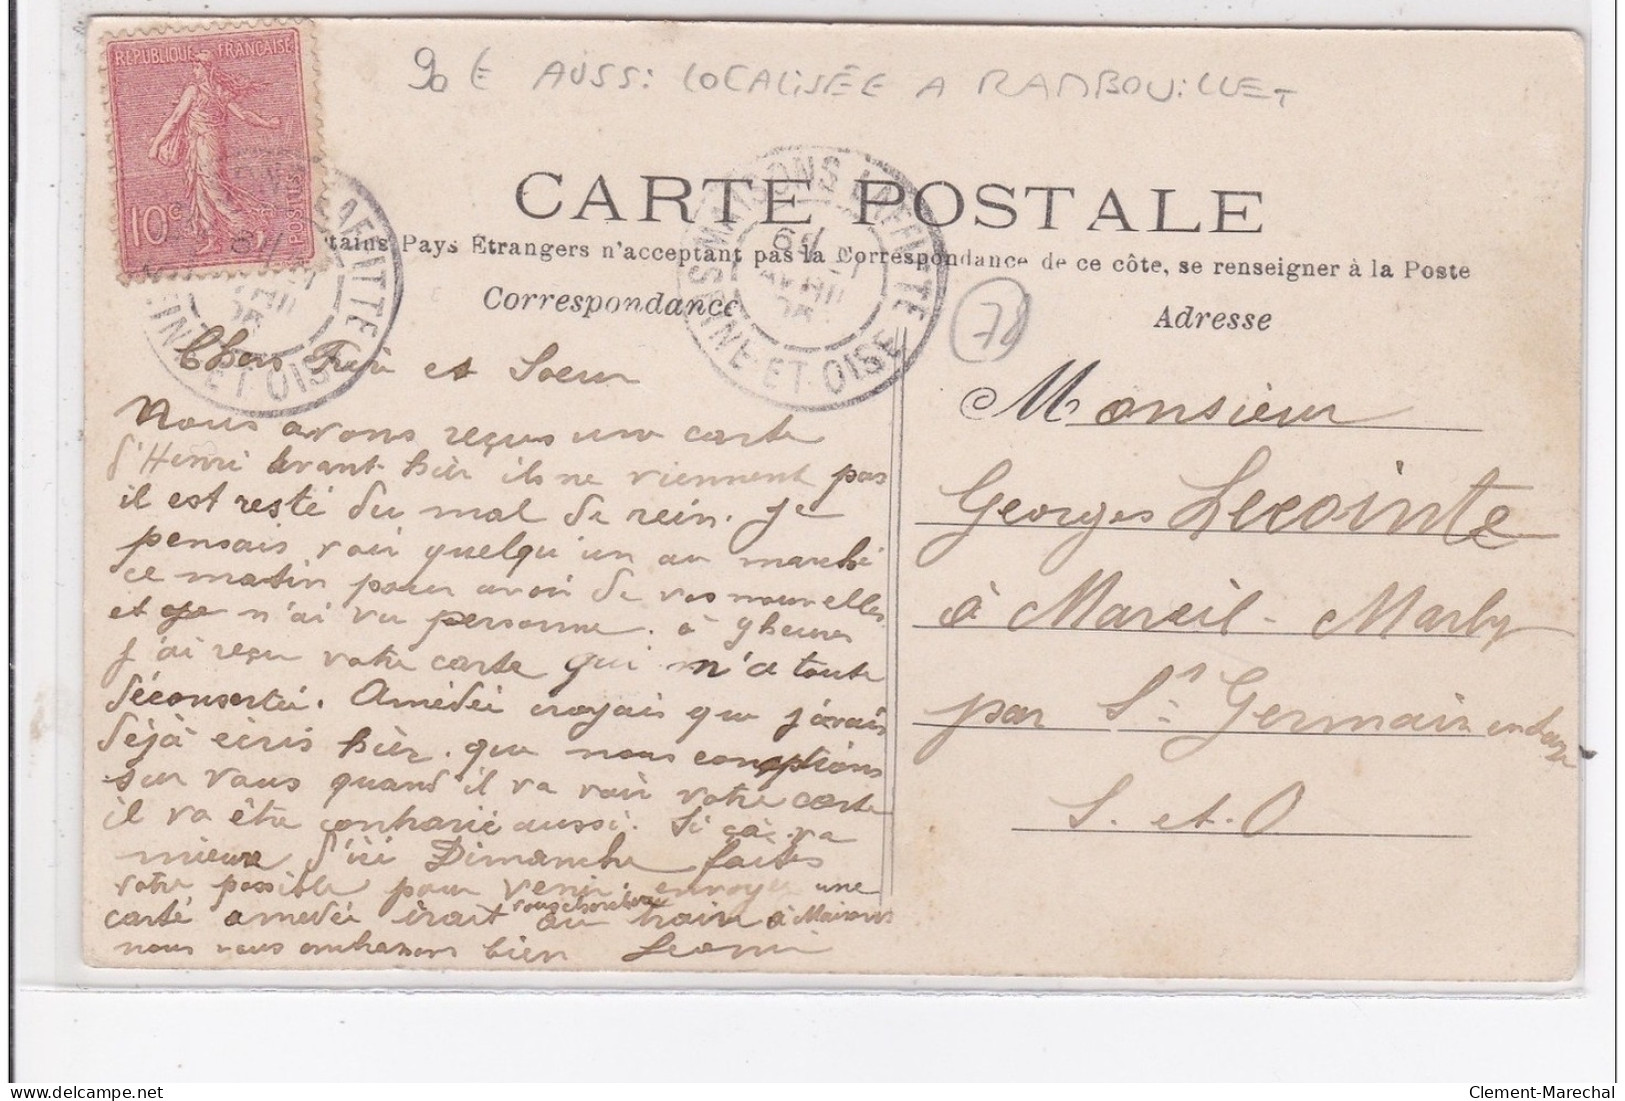 90 € AUSSI LOCALISÉE A RAMBOUILLET
REPUBLIQUE FRANÇAISE
10c POSTES
MAISONS LAFFITTE
SEINE-ET-OISE
CARTE POSTALE
tains Pays Etrangers n'acceptent pas la Correspondance de ce côte, se renseigner à la Poste
Correspondance
Adresse
78
Chers Frère et Soeur
Nous avons reçus une carte
d'Henri avant-hièr ils ne viennent pas
il est resté du mal de rein. Je
pensais voir quelqu'un au marché
ce matin pour avoir de vos nouvelles
et je n'ai vu personne. à 9 heures
j'ai reçu votre carte qui m'a toute
déconcertée. Amédée croyais que j'avais
déjà écris hièr. que nous comptions
sur vous quand il va voir votre carte
il va être contrarié aussi. Si ça va
mieux d'ici Dimanche faites
votre possible pour venir envoyer une
carte amedée irait vous chercher au train à Maisons
nous vous embrassons bien Léonie
Monsieur
Georges Lecointe
à Mareil-Marly
par St Germain en Laye
S. et. O
Clement-Marechal